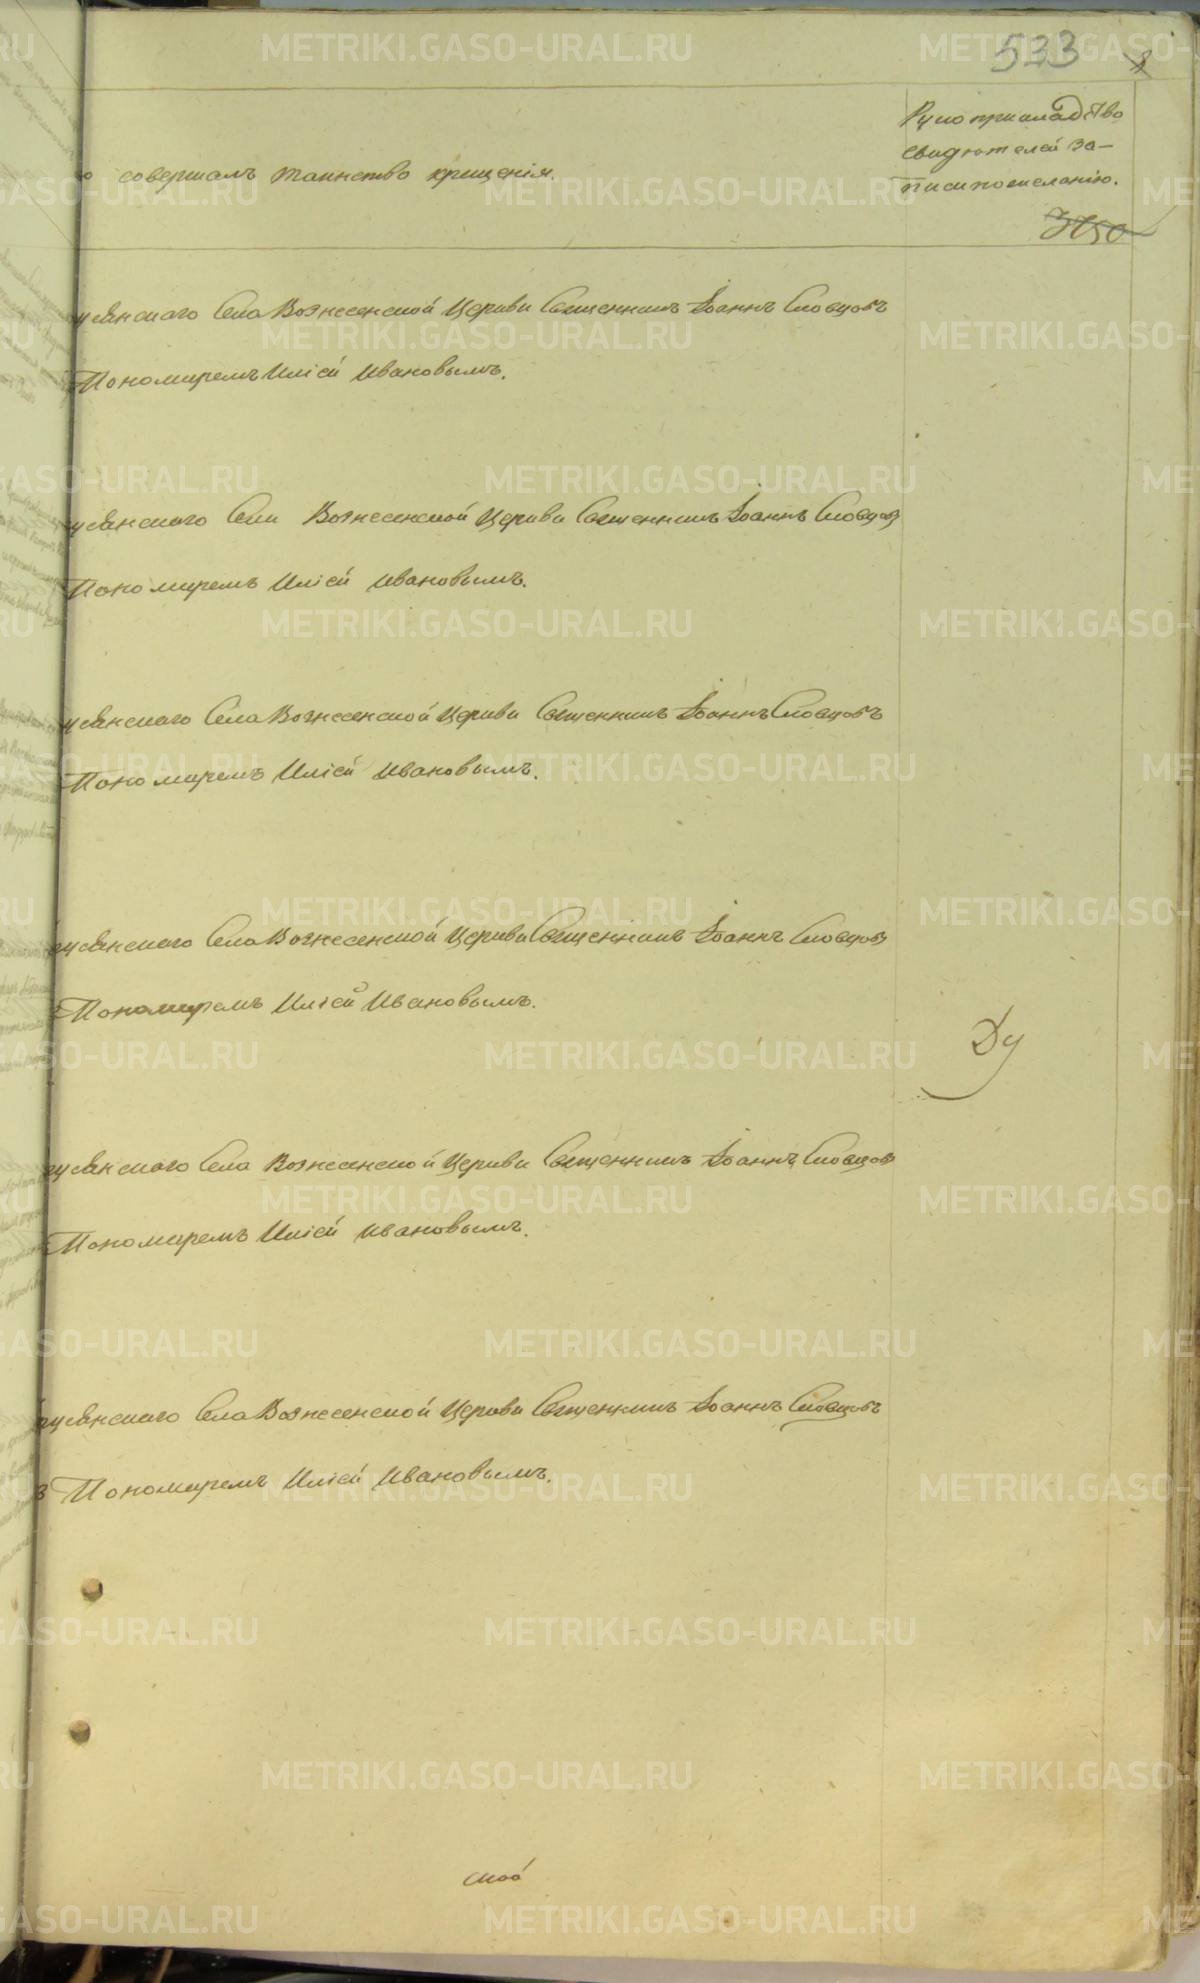 533
Рукоприкладство
свидѣтелей за-
писи по желанію.
совершалъ таинство крещенія.
усянскаго Села Вознесенской Церкви Священникъ Іоаннъ Словцовъ
Пономаремъ Иліей Ивановымъ.
усянскаго Села Вознесенской Церкви Священникъ Іоаннъ Словцовъ
Пономаремъ Иліей Ивановымъ.
усянскаго Села Вознесенской Церкви Священникъ Іоаннъ Словцовъ
Пономаремъ Иліей Ивановымъ.
усянскаго Села Вознесенской Церкви Священникъ Іоаннъ Словцовъ
Пономаремъ Иліей Ивановымъ.
Ду
усянскаго Села Вознесенской Церкви Священникъ Іоаннъ Словцовъ
Пономаремъ Иліей Ивановымъ.
усянскаго Села Вознесенской Церкви Священникъ Іоаннъ Словцовъ
Пономаремъ Иліей Ивановымъ.
METRIKI.GASO-URAL.RU